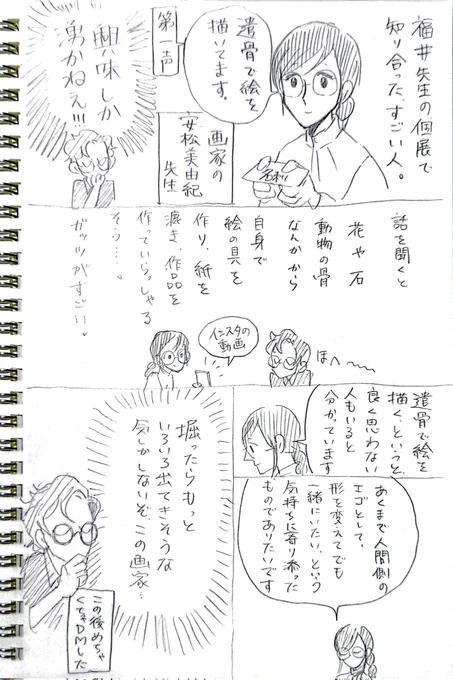 福井先生の個展で
知り合った、すごい人。
遺骨で絵を
描いてます。
第一声
画家の
安松美由紀
先生
名刺
興味しか
湧かねぇ!!!
話を聞くと
花や石
動物の骨
なんかから
自身で
絵の具を
作り、紙を
漉き、作品を
作っていらっしゃる
そう…。
ガッツがすごい。
インスタの
動画
ほへ〜
遺骨で絵を
描く、というと、
良く思わない
人もいると
分かっています
あくまで人間側の
エゴとして、
形を変えてでも
一緒にいたい、という
気持ちに寄り添った
ものでありたいです
掘ったらもっと
いろいろ出てきそうな
気しかしないぞ、この画家…
この後めちゃ
くちゃDMした